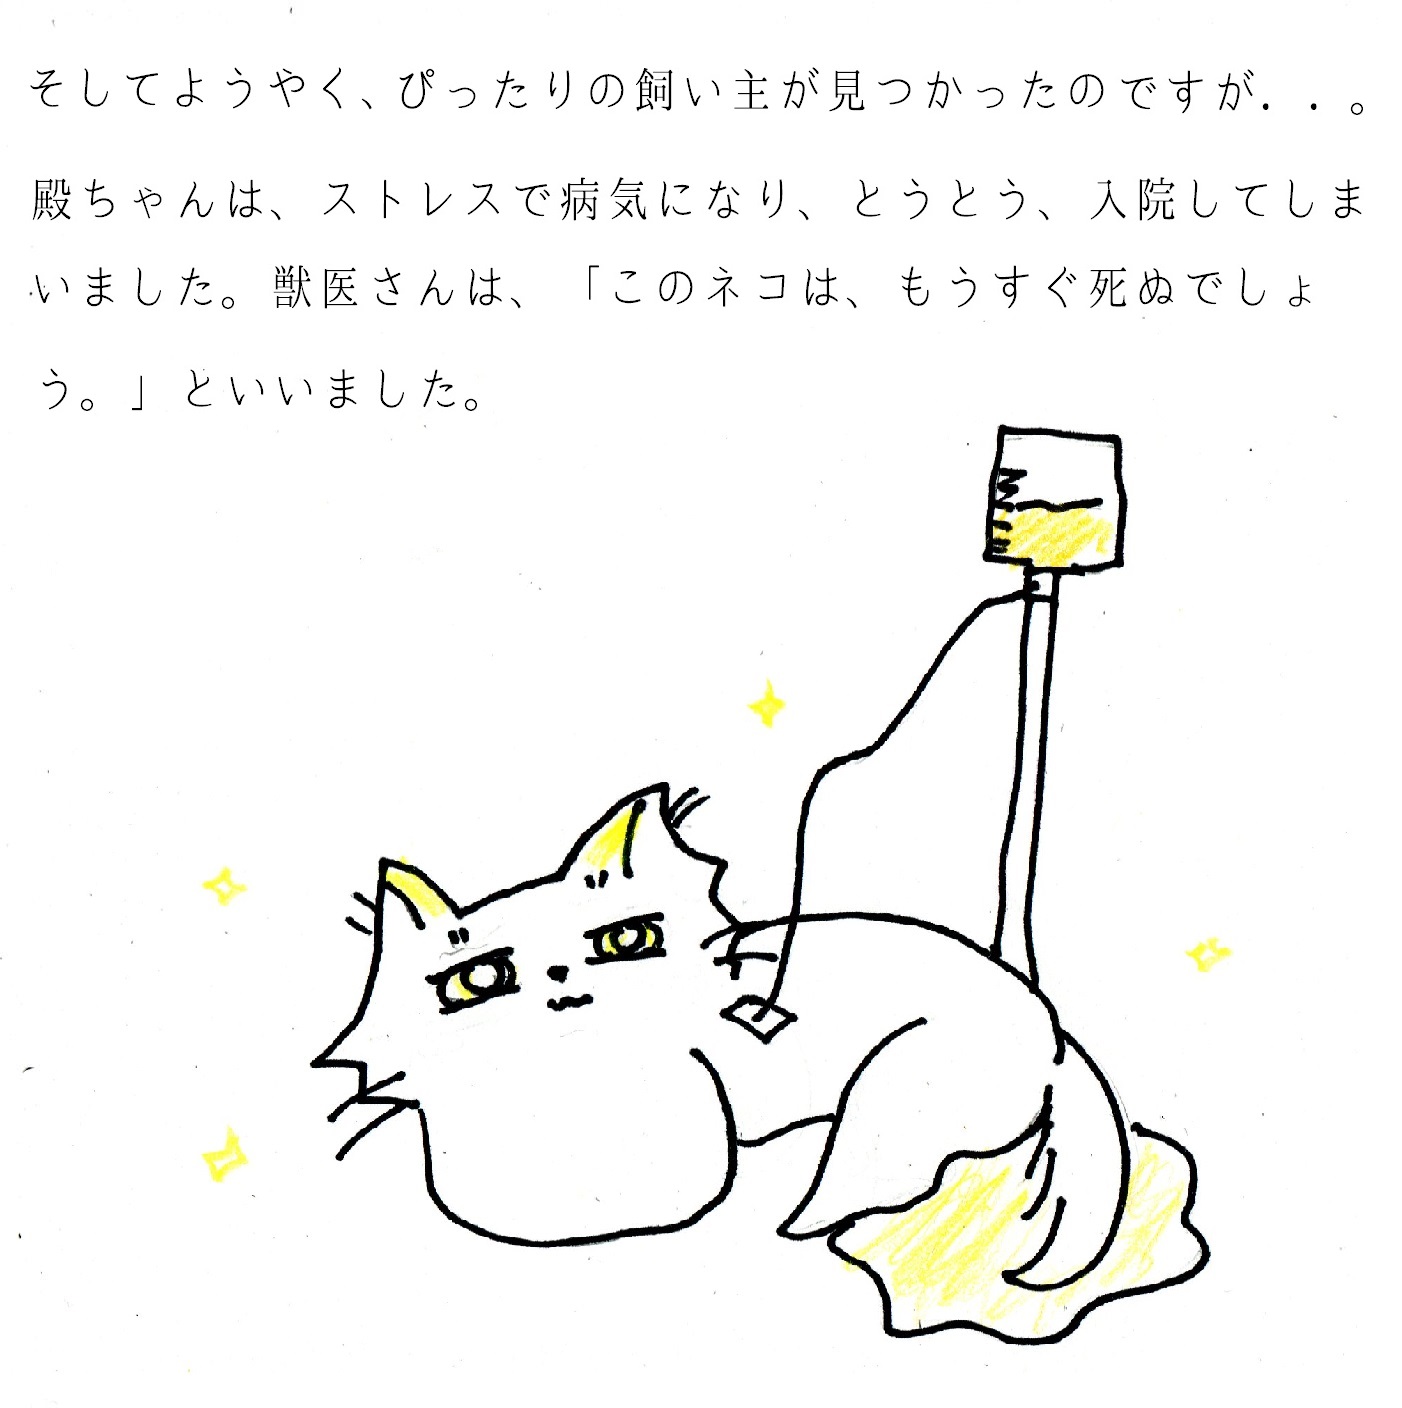 そしてようやく、ぴったりの飼い主が見つかったのですが．．。
殿ちゃんは、ストレスで病気になり、とうとう、入院してしま
いました。獣医さんは、「このネコは、もうすぐ死ぬでしょ
う。」といいました。